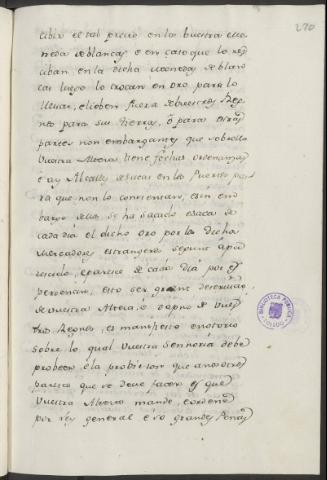 270
cibir el tal precio en la vuestra mo
neda de blancas e en caso que lo res
ciban en la dicha moneda de blan
cas luego lo trocan en oro para lo
llevar e lieben fuera de vuestros Rey
nos para sus tierras, o para otras
partes non embargante que sobrello
Vuestra Alteza tiene fechas ordenanzas
e ay Alcalles de sacas en los Puertos pa
ra que non lo consientan, e sin em
bargo dello se ha sacado e saca de
cada dia el dicho oro por los dichos
Mercadores estrangeros segunt apa
rescido, e paresce de cada dia por es
periencia, esto ser grant deservicio
de vuestra Alteza, e dapno de vues
tros Regnos es manifiesto e notorio
sobre lo qual Vuestra Señoria debe
probeer, e la probision que a nosotros
paresce que se deve facer es que
Vuestra Alteza mande, e ordene
por ley general e so grandes Penas
BIBLIOTECA PUBLICA
TOLEDO